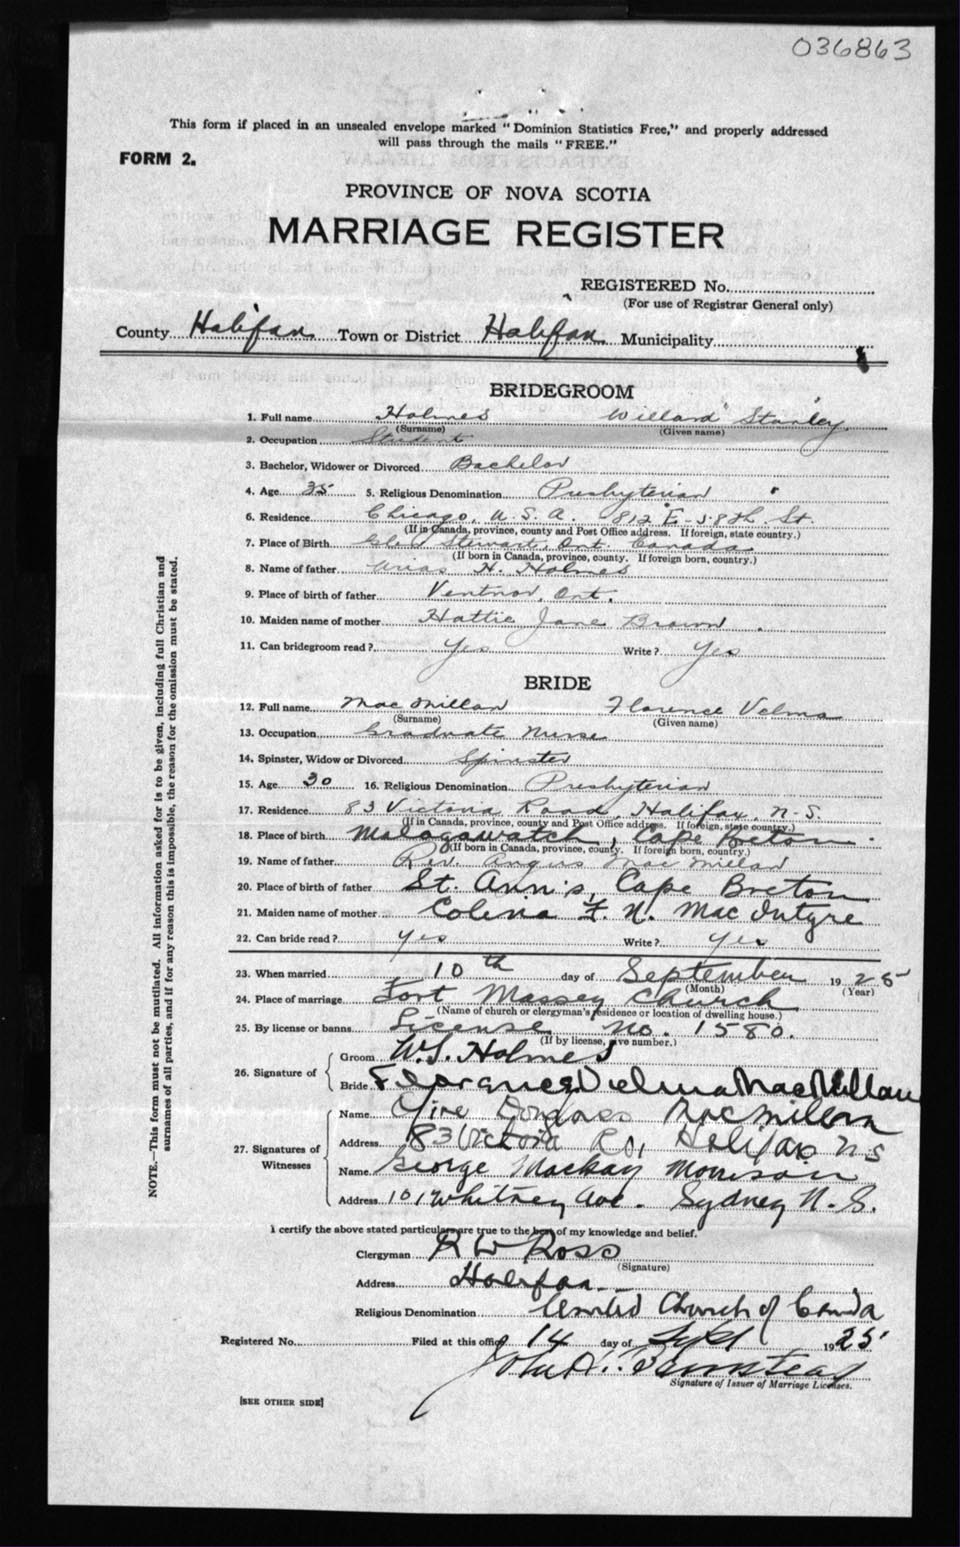 036863
This form if placed in an unsealed envelope marked "Dominion Statistics Free," and properly addressed
will pass through the mails "FREE."
FORM 2.
PROVINCE OF NOVA SCOTIA
MARRIAGE REGISTER
REGISTERED No.
(For use of Registrar General only)
County Halifax Town or District Halifax Municipality
BRIDEGROOM
1. Full name Holmes Willard Stanley
(Surname) (Given name)
2. Occupation Student
3. Bachelor, Widower or Divorced Bachelor
4. Age 35 5. Religious Denomination Presbyterian
6. Residence Chicago, U.S.A. 812 E-58th St.
(If in Canada, province, county and Post Office address. If foreign, state country.)
7. Place of Birth Stewart, Ont. Canada
(If born in Canada, province, county. If foreign born, country.)
8. Name of father H. Holmes
9. Place of birth of father Ventnor, Ont.
10. Maiden name of mother Hattie Jane Brown
11. Can bridegroom read? Yes Write? Yes
BRIDE
12. Full name MacMillan Florence Velma
(Surname) (Given name)
13. Occupation Graduate Nurse
14. Spinster, Widow or Divorced Spinster
15. Age 30 16. Religious Denomination Presbyterian
17. Residence 83 Victoria Road, Halifax, N-S.
(If in Canada, province, county and Post Office address. If foreign, state country.)
18. Place of birth Malagawatch, Cape Breton
(If born in Canada, province, county. If foreign born, country.)
19. Name of father Rev. Angus MacMillan
20. Place of birth of father St. Ann's, Cape Breton
21. Maiden name of mother Colina F. N. MacIntyre
22. Can bride read? yes Write? yes
23. When married 10th day of September 1925
(Month) (Year)
24. Place of marriage Fort Massey Church
(Name of church or clergyman's residence or location of dwelling house.)
25. By license or banns License No. 1580.
(If by license, give number.)
26. Signature of
Groom W.S. Holmes
Bride Florence Velma MacMillan
27. Signatures of Witnesses
Name MacMillan
Address 83 Victoria Rd, Halifax NS
Name George Mackay Morrison
Address 101 Whitney Ave. Sydney N.S.
I certify the above stated particulars are true to the best of my knowledge and belief.
Clergyman R W Ross
(Signature)
Address Halifax
Religious Denomination United Church of Canda
Registered No. Filed at this office 14 day of Sept 1925
John A.
Signature of Issuer of Marriage Licenses.
[SEE OTHER SIDE]
NOTE.—This form must not be mutilated. All information asked for is to be given, including full Christian and
surnames of all parties, and if for any reason this is impossible, the reason for the omission must be stated.